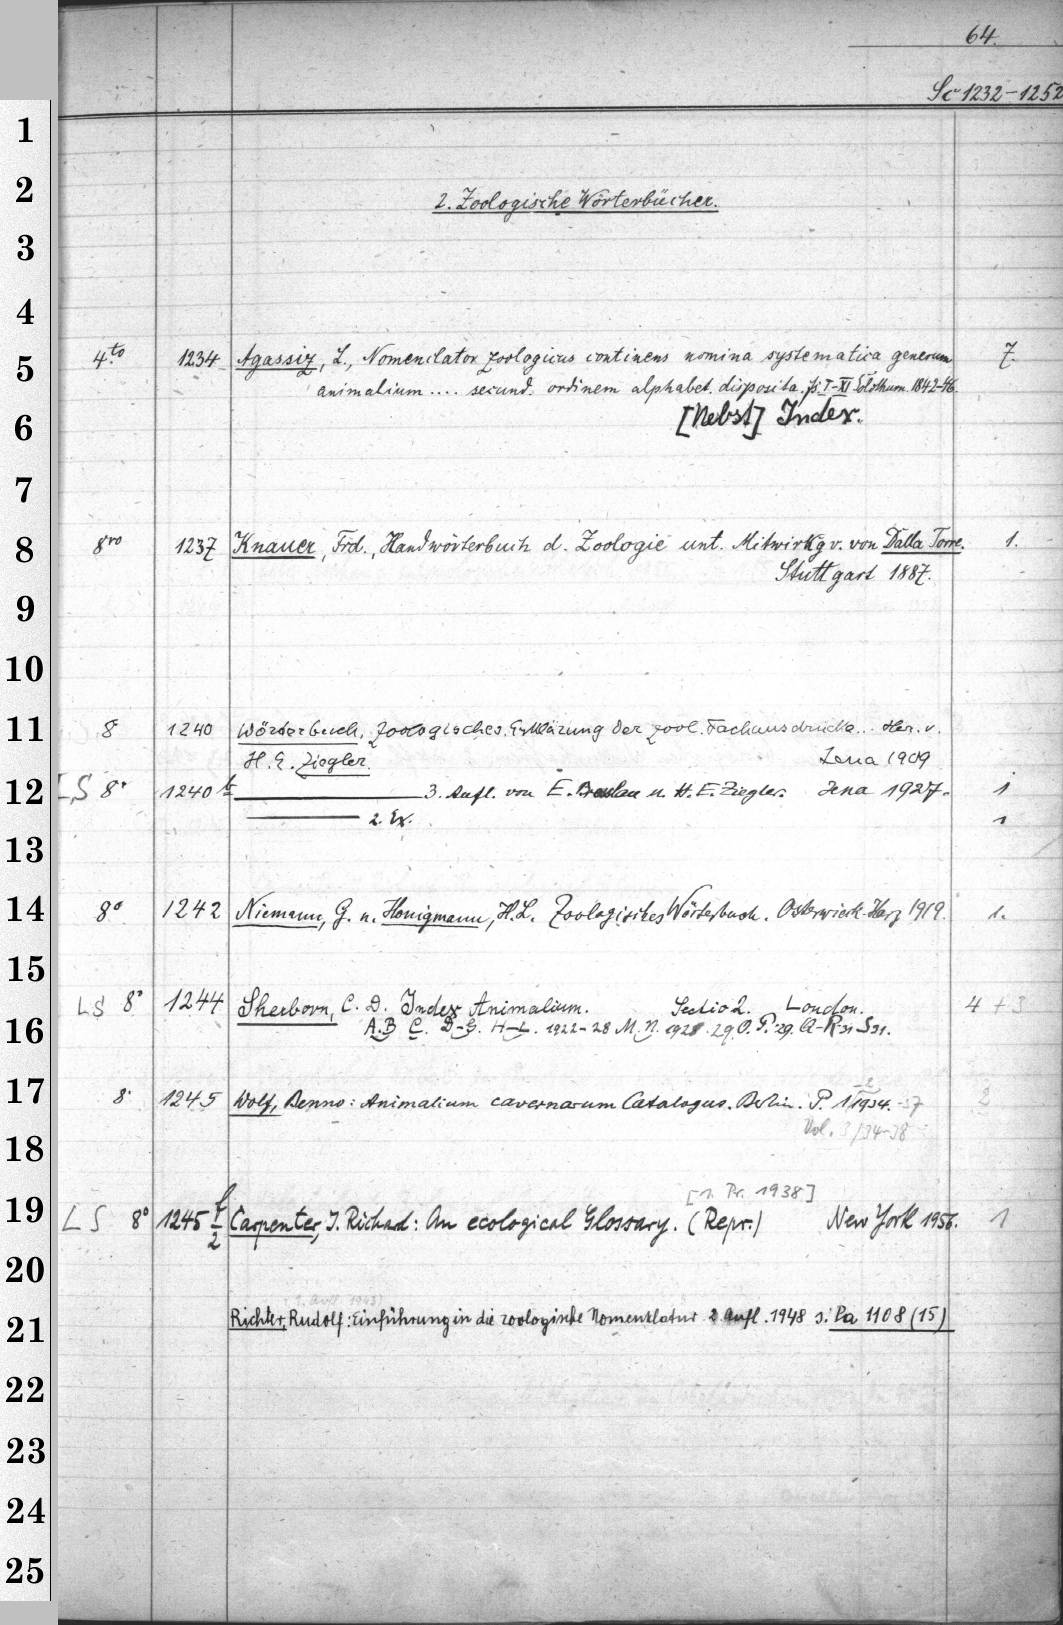 64.
Sc 1232-1252
1
2
2. Zoologische Wörterbücher.
3
4
5
4to 1234 Agassiz, L., Nomenclator zoologicus continens nomina systematica generum 7.
animalium .... secund. ordinem alphabet. disposita. fs. I-XI Solothurn. 1842-46.
6
[Nebst] Index.
7
8
8vo 1237 Knauer, Frd., Handwörterbuch d. Zoologie unt. Mitwirkg v. von Dalla Torre. 1.
Stuttgart 1887.
9
10
11
8 1240 Wörterbuch, Zoologisches. Erklärung der zool. Fachausdrücke... Her. v.
H. E. Ziegler. Jena 1909
12
LS 8° 1240 b 3. Aufl. von E. Bresslau u. H. E. Ziegler. Jena 1927. 1
2. Ex. 1
13
14
8° 1242 Niemann, G. u. Honigmann, H. L. Zoologisches Wörterbuch. Osterwieck-Harz 1919. 1.
15
LS 8° 1244 Sherborn, C. D. Index Animalium. Sectio 2. London. 4 + 3
16
A.B C. D-G. H-L. 1922-28 M. N. 1928. 29. O. P. 29. Q-R 31 S 31.
17
8° 1245 Wolf, Benno: Animalium cavernarum Catalogus. Berlin. P. 1/1934. -37 2
Vol. 3/34-38
18
[1. Pr. 1938]
19
LS 8° 1245 f/2 Carpenter, J. Richard: An ecological Glossary. (Repr.) New York 1956. 1
20
1. Aufl. 1943)
21
Richter, Rudolf: Einführung in die zoologische Nomenklatur 2 Aufl. 1948 s: Pa 1108 (15)
22
23
24
25